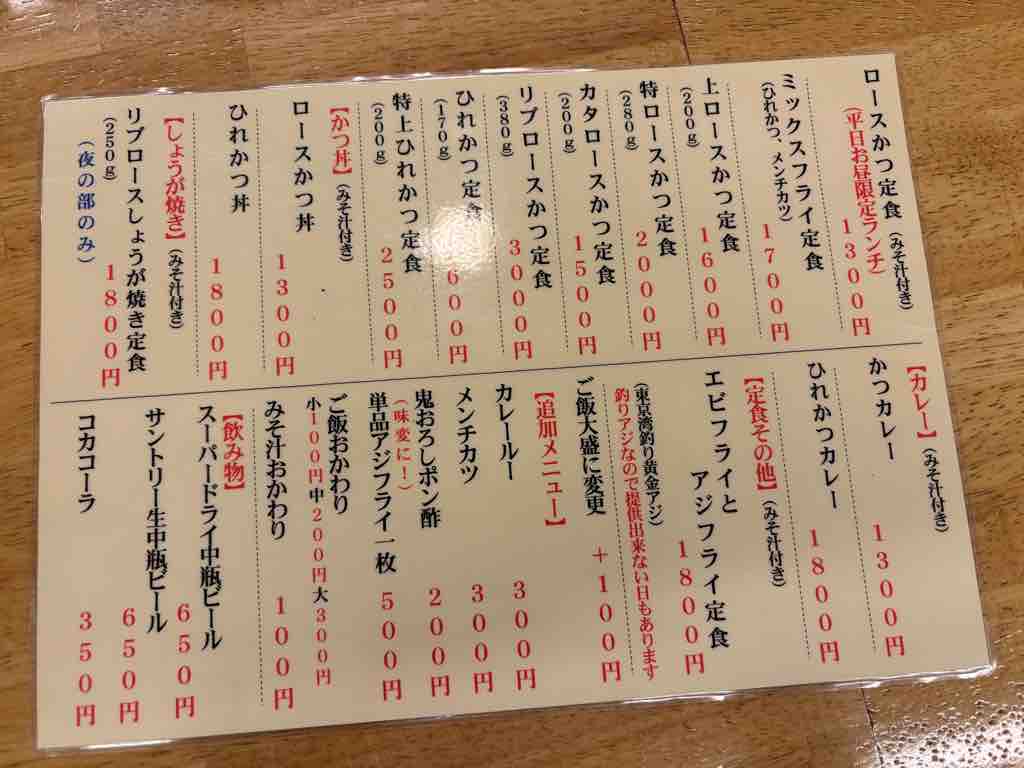 ロースかつ定食（みそ汁付き）
（平日お昼限定ランチ）
1300円
ミックスフライ定食
（ひれかつ、メンチカツ）
1700円
上ロースかつ定食
（200g）
1600円
特ロースかつ定食
（280g）
2000円
カタロースかつ定食
（200g）
1500円
リブロースかつ定食
（380g）
3000円
ひれかつ定食
（170g）
600円
特上ひれかつ定食
（200g）
2500円
【かつ丼】（みそ汁付き）
ロースかつ丼
1300円
ひれかつ丼
1800円
【しょうが焼き】（みそ汁付き）
リブロースしょうが焼き定食
（250g）
1800円
（夜の部のみ）
【カレー】（みそ汁付き）
かつカレー
1300円
ひれかつカレー
1800円
【定食その他】（みそ汁付き）
エビフライと
アジフライ定食
1800円
（東京湾釣り黄金アジ）
釣りアジなので提供出来ない日もあります
ご飯大盛に変更
＋100円
【追加メニュー】
カレールー
300円
メンチカツ
300円
鬼おろしポン酢
（味変に！）
200円
単品アジフライ一枚
500円
ご飯おかわり
小100円中200円大300円
みそ汁おかわり
100円
【飲み物】
スーパードライ中瓶ビール
650円
サントリー生中瓶ビール
650円
コカコーラ
350円